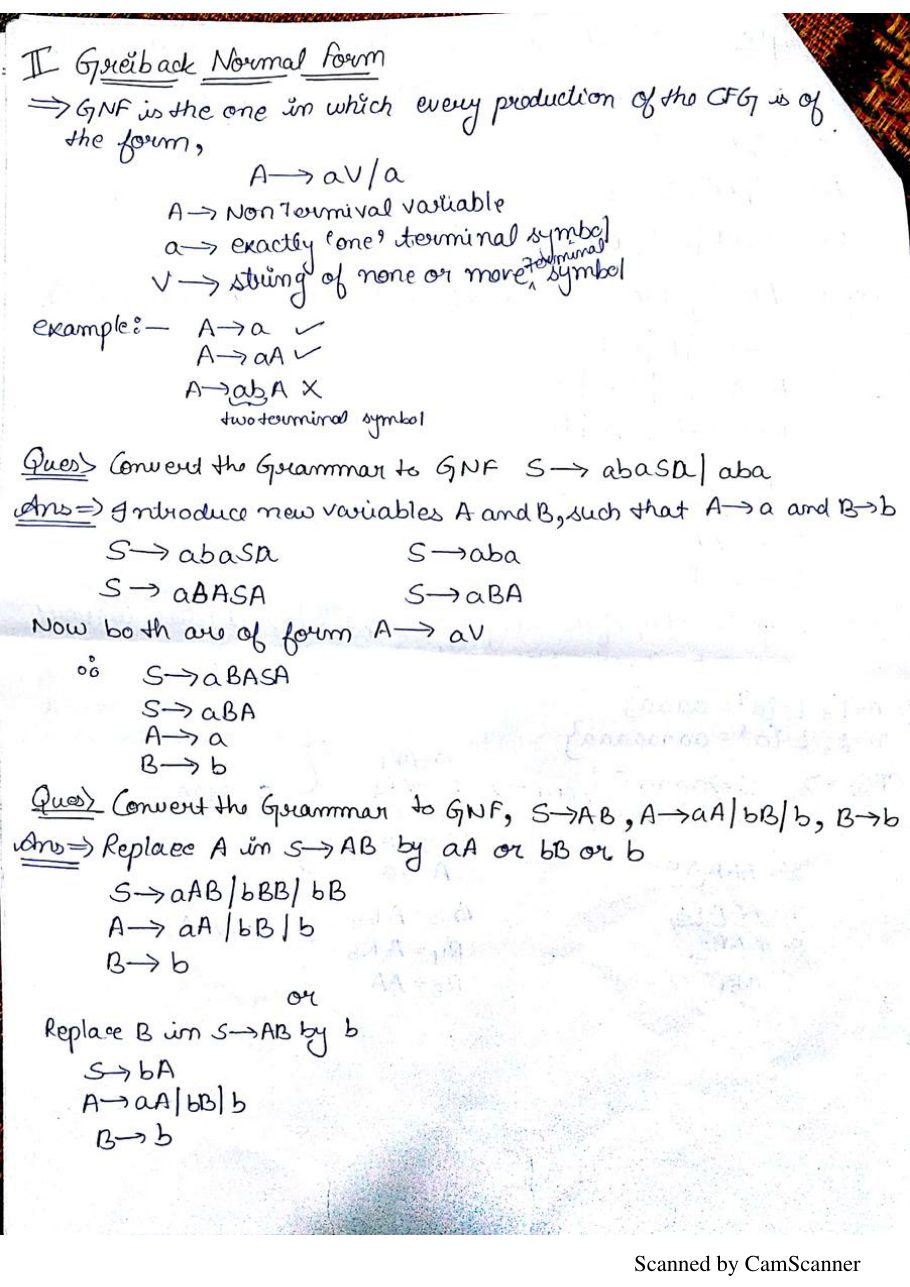 II Greiback Normal Form
⇒ GNF is the one in which every production of the CFG is of
the form,
A → aV/a
A → Non Termival variable
a → exactly 'one' terminal symbol
V → string of none or more terminal symbol
example:- A → a ✓
A → aA ✓
A → abA X
two terminal symbol
Ques> Convert the Grammar to GNF S → abaSa | aba
Ans ⇒ Introduce new variables A and B, such that A → a and B → b
S → abaSa S → aba
S → aBASA S → aBA
Now both are of form A → aV
∴ S → aBASA
S → aBA
A → a
B → b
Ques> Convert the Grammar to GNF, S → AB, A → aA | bB | b, B → b
Ans ⇒ Replace A in S → AB by aA or bB or b
S → aAB | bBB | bB
A → aA | bB | b
B → b
or
Replace B in S → AB by b
S → bA
A → aA | bB | b
B → b
Scanned by CamScanner